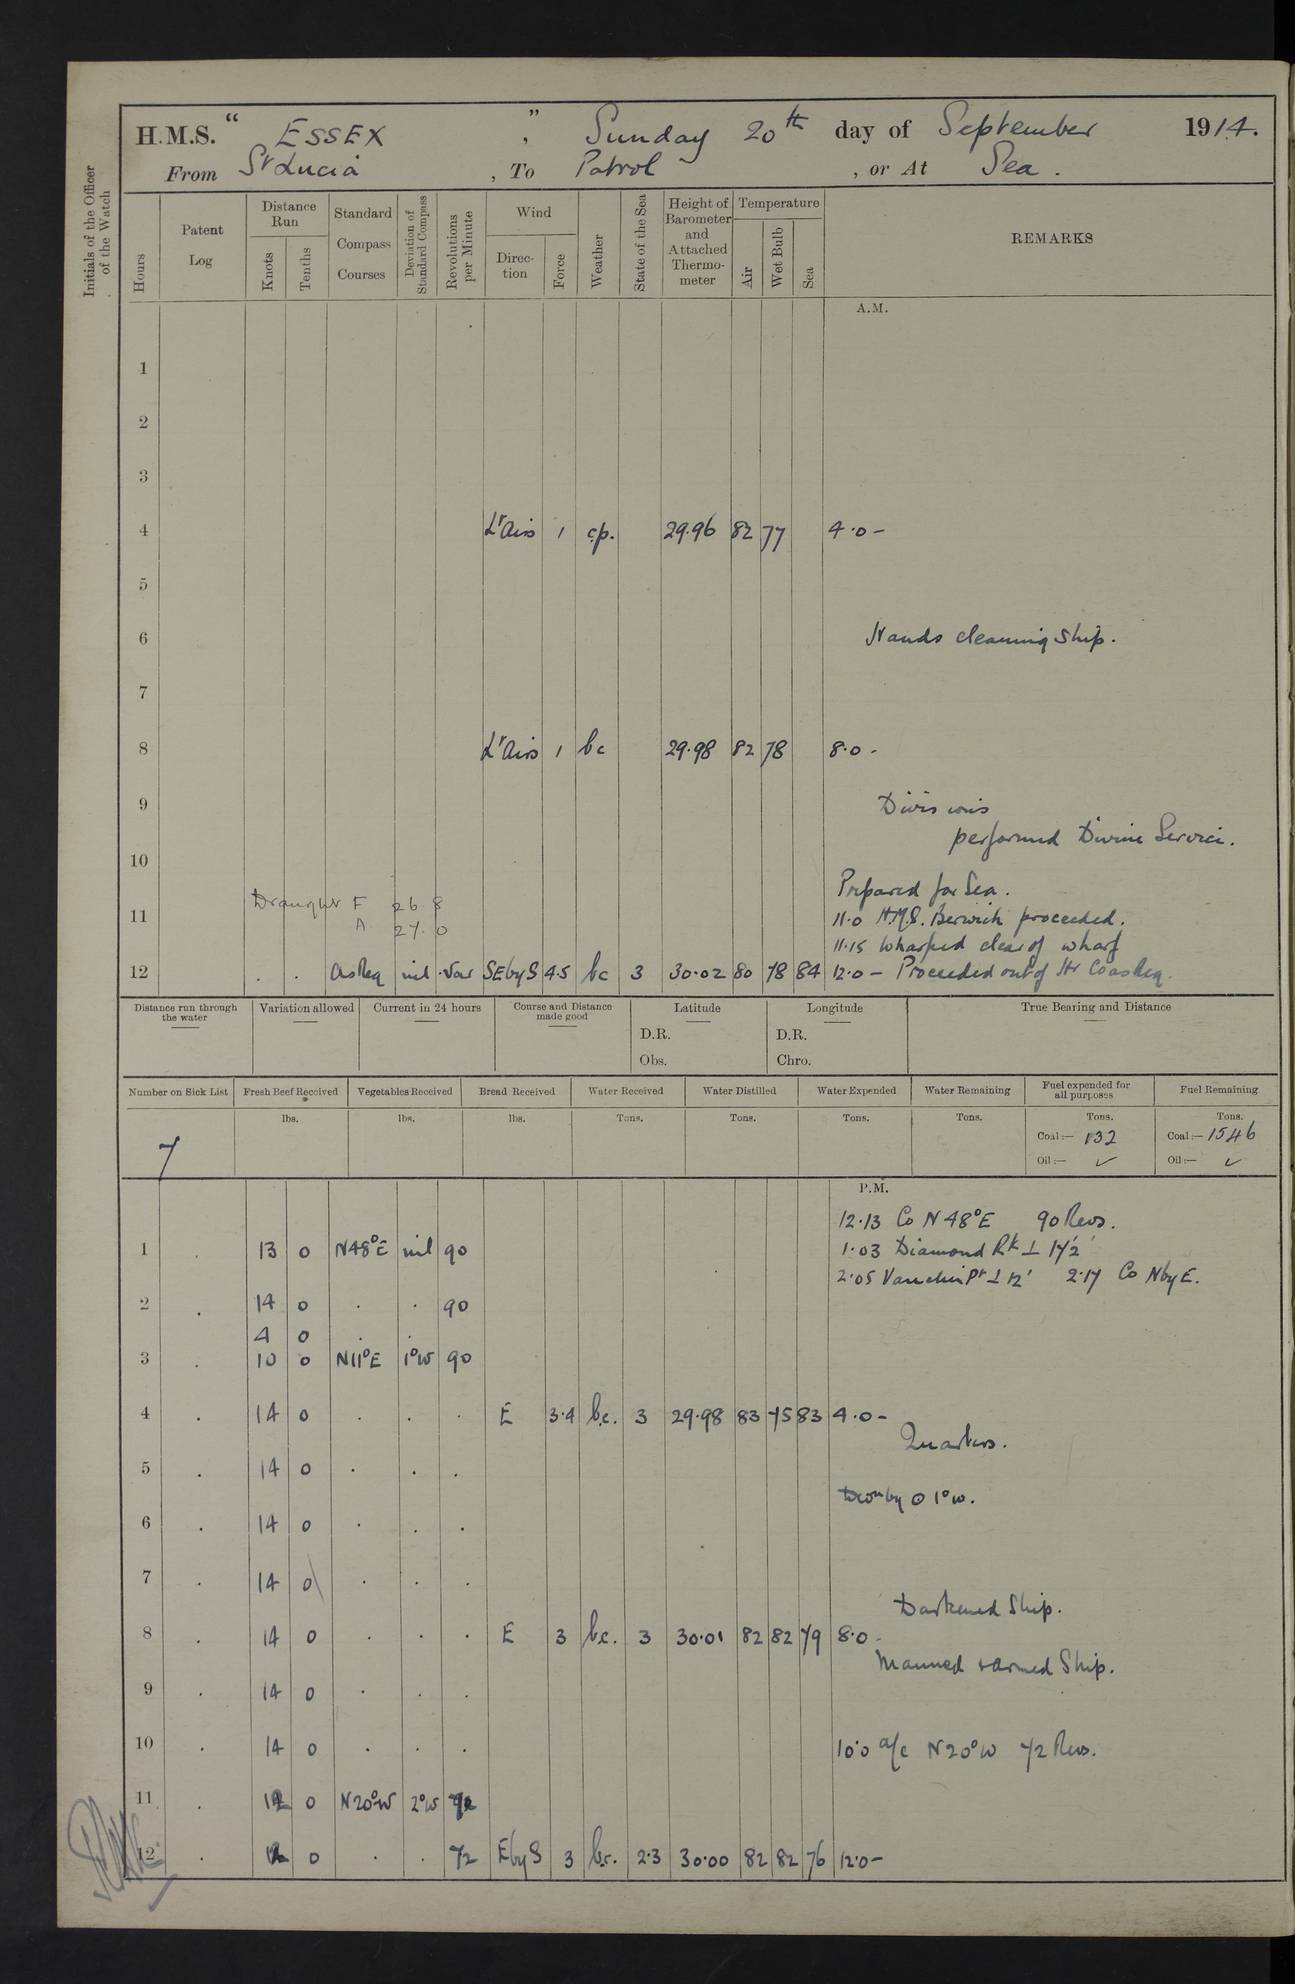 H.M.S. " ESSEX ", Sunday 20th day of September 1914.
From St Lucia, To Patrol, or At Sea.
Initials of the Officer of the Watch
Hours Patent Log Distance Run Knots Tenths Standard Compass Courses Deviation of Standard Compass Revolutions per Minute Wind Direction Force Weather State of the Sea Height of Barometer and Attached Thermometer Temperature Air Wet Bulb Sea REMARKS
A.M.
1
2
3
4 Lt Airs 1 c.p. 29.96 82 77 4.0 -
5
6 Hands cleaning Ship.
7
8 Lt Airs 1 bc 29.98 82 78 8.0 -
9 Divisions
performed Divine Service.
10
Prepared for Sea.
Draught F 26.8
11 A 27.0 11.0 H.M.S. Berwick proceeded.
11.15 Wharped clear of wharf
12 . . As Req nil Var SE by S 4.5 bc 3 30.02 80 78 84 12.0 - Proceeded out of Hr Co as Req.
Distance run through the water Variation allowed Current in 24 hours Course and Distance made good Latitude Longitude True Bearing and Distance
D.R. D.R.
Obs. Chro.
Number on Sick List Fresh Beef Received Vegetables Received Bread Received Water Received Water Distilled Water Expended Water Remaining Fuel expended for all purposes Fuel Remaining
lbs. lbs. lbs. Tons. Tons. Tons. Tons. Tons. Tons.
7 Coal:— 132 Coal:— 1546
Oil:— ✓ Oil:— ✓
P.M.
12.13 Co N48°E 90 Revs.
1 . 13 0 N48°E nil 90 1.03 Diamond Rk ⊥ 1½'
2.05 Vauclin Pt ⊥ 12' 2.17 Co N by E.
2 . 14 0 . . 90
4 0 . .
3 . 10 0 N11°E 1°W 90
4 . 14 0 . . . E 3.4 b.c. 3 29.98 83 75 83 4.0 -
Quarters.
5 . 14 0 . . .
Devon by ⊙ 1°W.
6 . 14 0 . . .
7 . 14 0 . . .
Darkened Ship.
8 . 14 0 . . . E 3 b.c. 3 30.01 82 82 79 8.0 -
Manned & armed Ship.
9 . 14 0 . . .
10 . 14 0 . . . 10.0 a/c N20°W 72 Revs.
11 . 12 0 N20°W 2°W 72
12 . 12 0 . . 72 E by S 3 b.c. 2.3 30.00 82 82 76 12.0 -